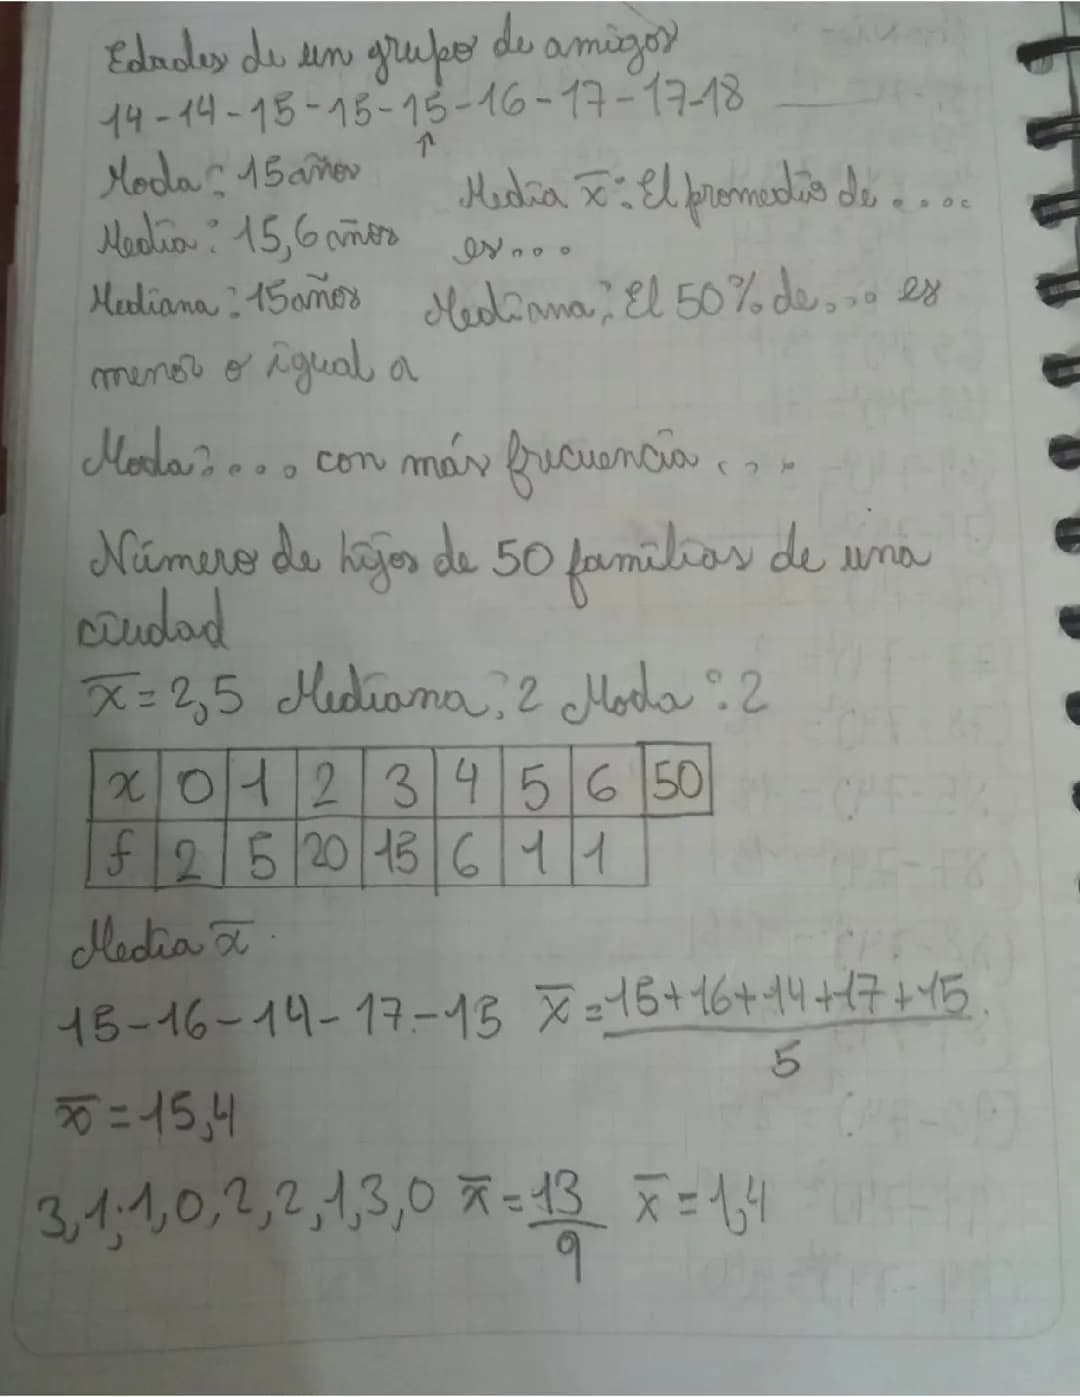 Edades de un grupo de amigos
14-14-15-15-15-16-17-17-18
↑
Moda: 15 años
Media: 15,6 años
Mediana: 15 años
Media x̅: El promedio de ....
es...
Mediana: El 50% de... es
menor o igual a
Moda: ... con más frecuencia ...
Número de hijos de 50 familias de una
ciudad
x̅=2,5 Mediana: 2 Moda: 2
x 0 1 2 3 4 5 6 50
f 2 5 20 15 6 1 1
Media x̅.
15-16-14-17-15 x̅=15+16+14+17+15
5
x̅=15,4
3,1,1,0,2,2,1,3,0 x̅=13 x̅=1,4
9